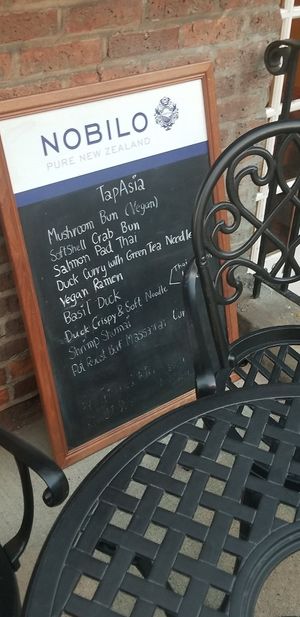 NOBILO
PURE NEW ZEALAND
TapAsia
Mushroom Bun (Vegan)
Softshell Crab Bun
Salmon Pad Thai
Duck Curry with Green Tea Noodle
Vegan Ramen
Basil Duck
Duck Crispy & Soft Noodle (Thai
Shrimp Shumai
Pot Roast Beef Massaman Cur